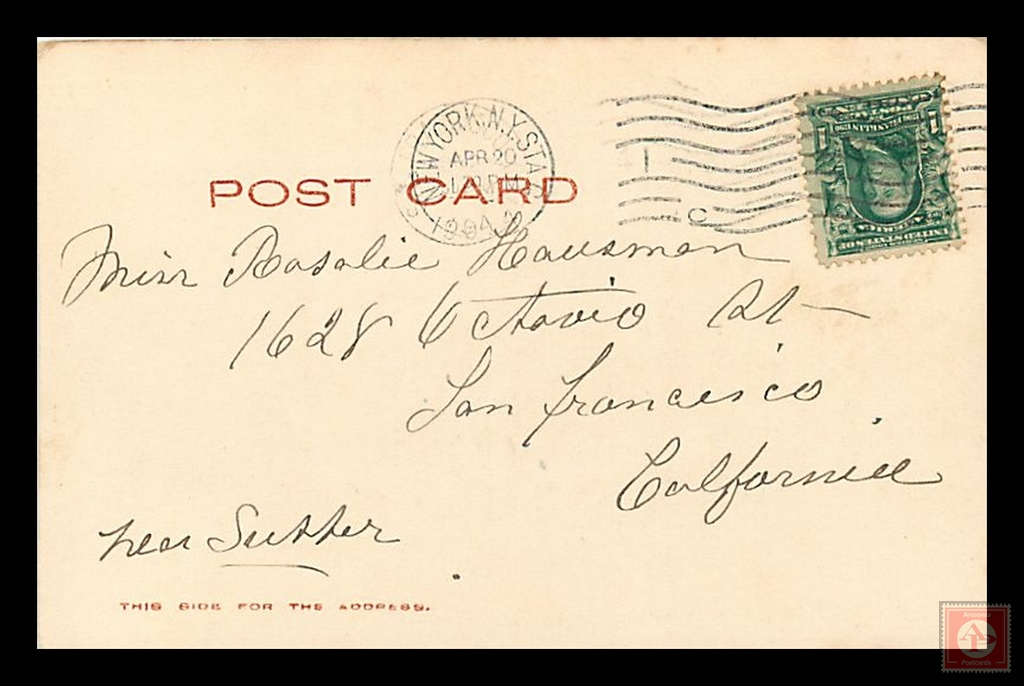 POST CARD
NEW YORK, N.Y. STA.
APR 20
1904
C
Miss Rosalie Hausman
1628 Octavio St
San Francisco
California
near Sutter
THIS SIDE FOR THE ADDRESS.
1 1
UNITED STATES OF
AMERICA
AP
Postcards